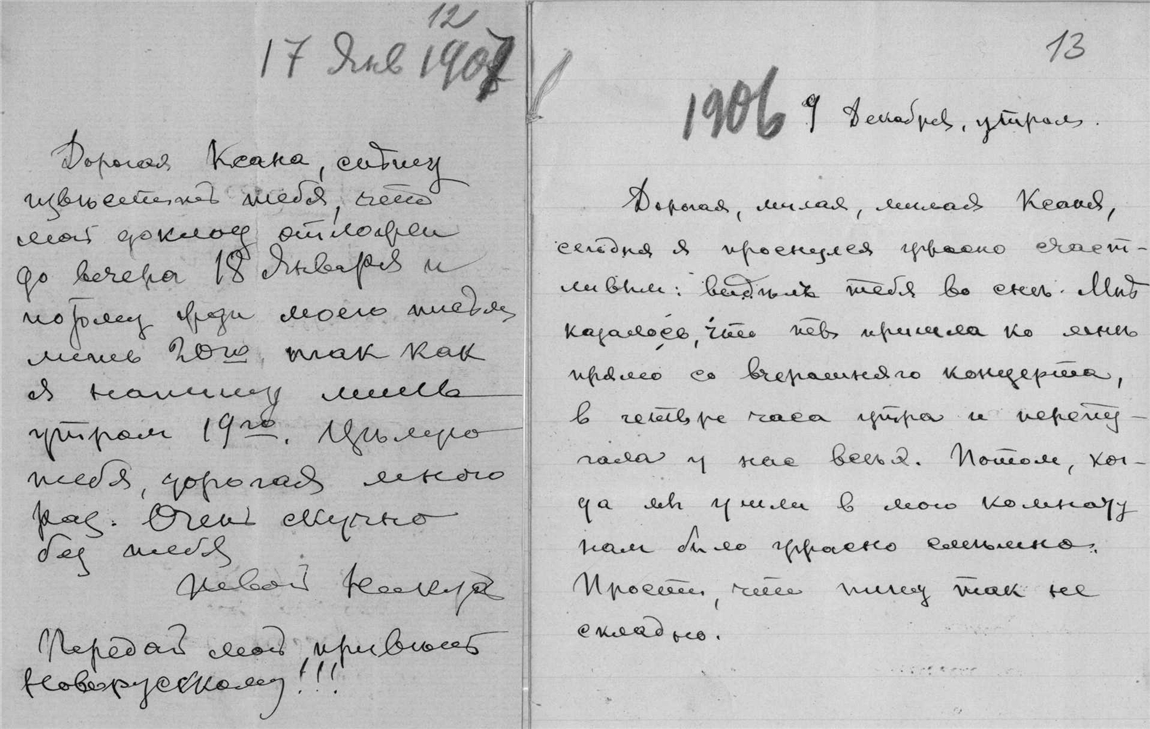 12
17 Янв 1907
Дорогая Ксана, спешу
извѣстить тебя, что
мой доклад отложен
до вечера 18 Января и
потому жди моего письма
лишь 20го, так как
я напишу лишь
утром 19го. Цѣлую
тебя, дорогая много
раз. Очень скучно
без тебя
Передай мой привѣт
Новорусскому!!!
13
1906 9 Декабря, утром.
Дорогая, милая, милая Ксаня,
сегодня я проснулся ужасно счаст-
ливым: видѣл тебя во снѣ. Мнѣ
казалось, что ты пришла ко мнѣ
прямо со вчерашняго концерта,
в четыре часа утра и перепу-
гала у нас всѣх. Потом, ког-
да мы ушли в мою комнату
нам было ужасно смѣшно.
Прости, что пишу так не
складно.